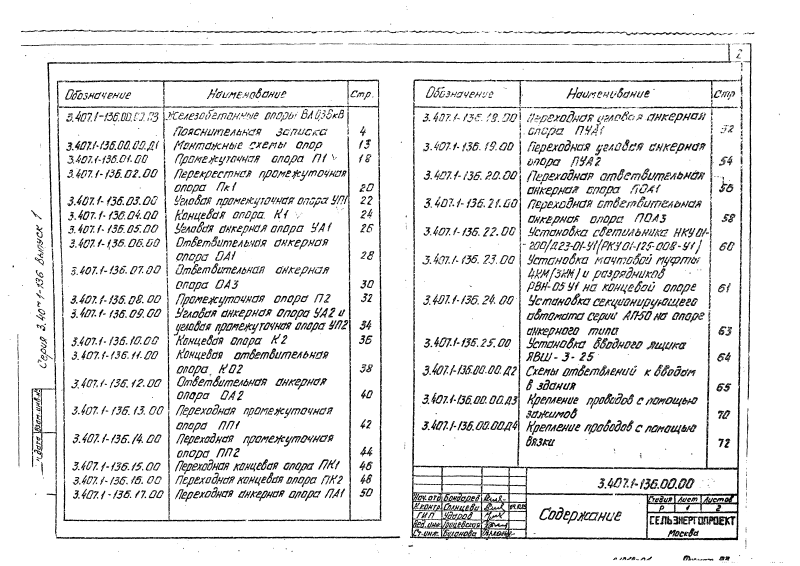 2
Обозначение Наименование Стр.
3.407.1-136.00.00.ПЗ Железобетонные опоры ВЛ 0,38кВ
Пояснительная записка 4
3.407.1-136.00.00.Д1 Монтажные схемы опор 13
3.407.1-136.01.00 Промежуточная опора П1 18
3.407.1-136.02.00 Перекрестная промежуточная
опора Пк1 20
3.407.1-136.03.00 Угловая промежуточная опора УП1 22
3.407.1-136.04.00 Концевая опора К1 24
3.407.1-136.05.00 Угловая анкерная опора УА1 26
3.407.1-136.06.00 Ответвительная анкерная
опора ОА1 28
3.407.1-136.07.00 Ответвительная анкерная
опора ОА3 30
3.407.1-136.08.00 Промежуточная опора П2 32
3.407.1-136.09.00 Угловая анкерная опора УА2 и
угловая промежуточная опора УП2 34
3.407.1-136.10.00 Концевая опора К2 36
3.407.1-136.11.00 Концевая ответвительная
опора КО2 38
3.407.1-136.12.00 Ответвительная анкерная
опора ОА2 40
3.407.1-136.13.00 Переходная промежуточная
опора ПП1 42
3.407.1-136.14.00 Переходная промежуточная
опора ПП2 44
3.407.1-136.15.00 Переходная концевая опора ПК1 46
3.407.1-136.16.00 Переходная концевая опора ПК2 48
3.407.1-136.17.00 Переходная анкерная опора ПА1 50
Обозначение Наименование Стр
3.407.1-136.18.00 Переходная угловая анкерная
опора ПУА1 52
3.407.1-136.19.00 Переходная угловая анкерная
опора ПУА2 54
3.407.1-136.20.00 Переходная ответвительная
анкерная опора ПОА1 56
3.407.1-136.21.00 Переходная ответвительная
анкерная опора ПОА3 58
3.407.1-136.22.00 Установка светильника НКУ01-
200/Д23-01-У1(РКУ01-125-008-У1) 60
3.407.1-136.23.00 Установка мачтовой муфты
4КМ(3КМ) и разрядников
РВН-05У1 на концевой опоре 61
3.407.1-136.24.00 Установка секционирующего
автомата серии АП50 на опоре
анкерного типа 63
3.407.1-136.25.00 Установка вводного ящика
ЯВШ-3-25 64
3.407.1-136.00.00.Д2 Схемы ответвлений к вводам
в здания 65
3.407.1-136.00.00.Д3 Крепление проводов с помощью
зажимов 70
3.407.1-136.00.00.Д4 Крепление проводов с помощью
вязки 72
Серия 3.407.1-136 Выпуск 1
3.407.1-136.00.00
Нач.отд Бондарев
Н.контр Солнцева
ГИП Ударов
Вед.инж
Ст.инж. Буганова
Содержание
Стадия Лист Листов
Р 1 2
СЕЛЬЭНЕРГОПРОЕКТ
Москва